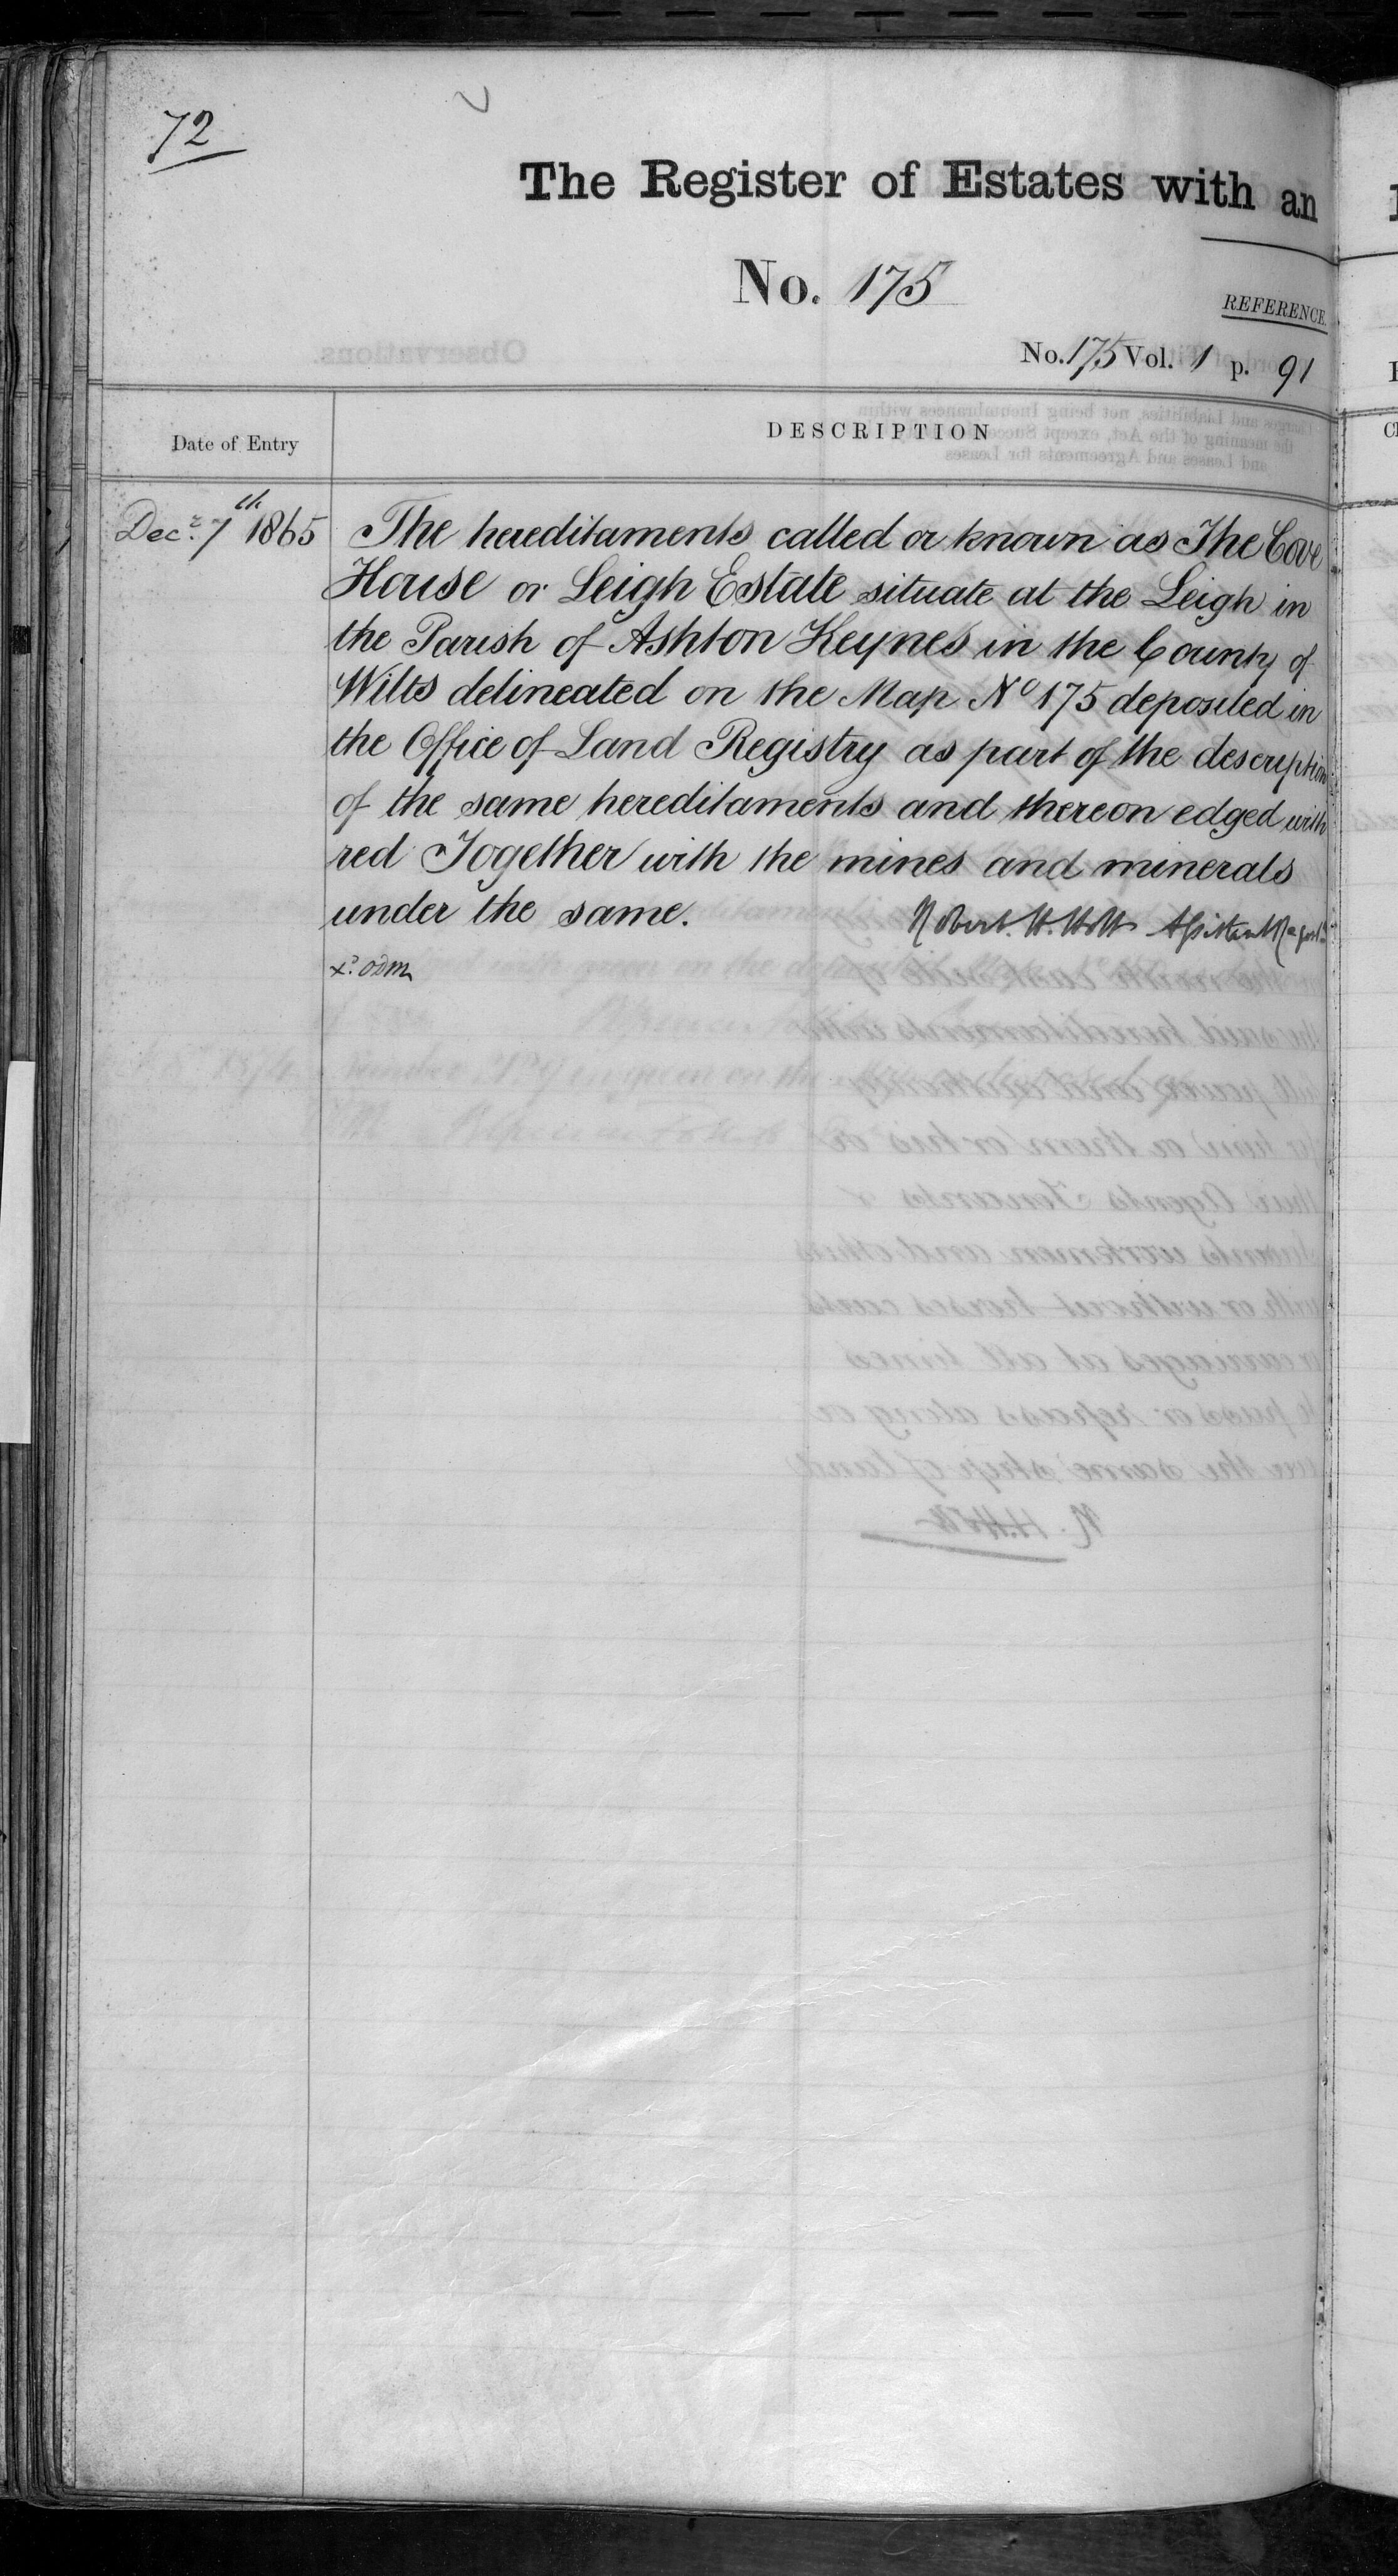 72
The Register of Estates with an
No. 175
REFERENCE.
No. 175 Vol. 1 p. 91
Date of Entry
DESCRIPTION
Decr. 7th 1865
The hereditaments called or known as The Cove
House or Leigh Estate situate at the Leigh in
the Parish of Ashton Keynes in the County of
Wilts delineated on the Map No 175 deposited in
the Office of Land Registry as part of the description
of the same hereditaments and thereon edged with
red Together with the mines and minerals
under the same.
Robert. H. Holt Assistant Registr